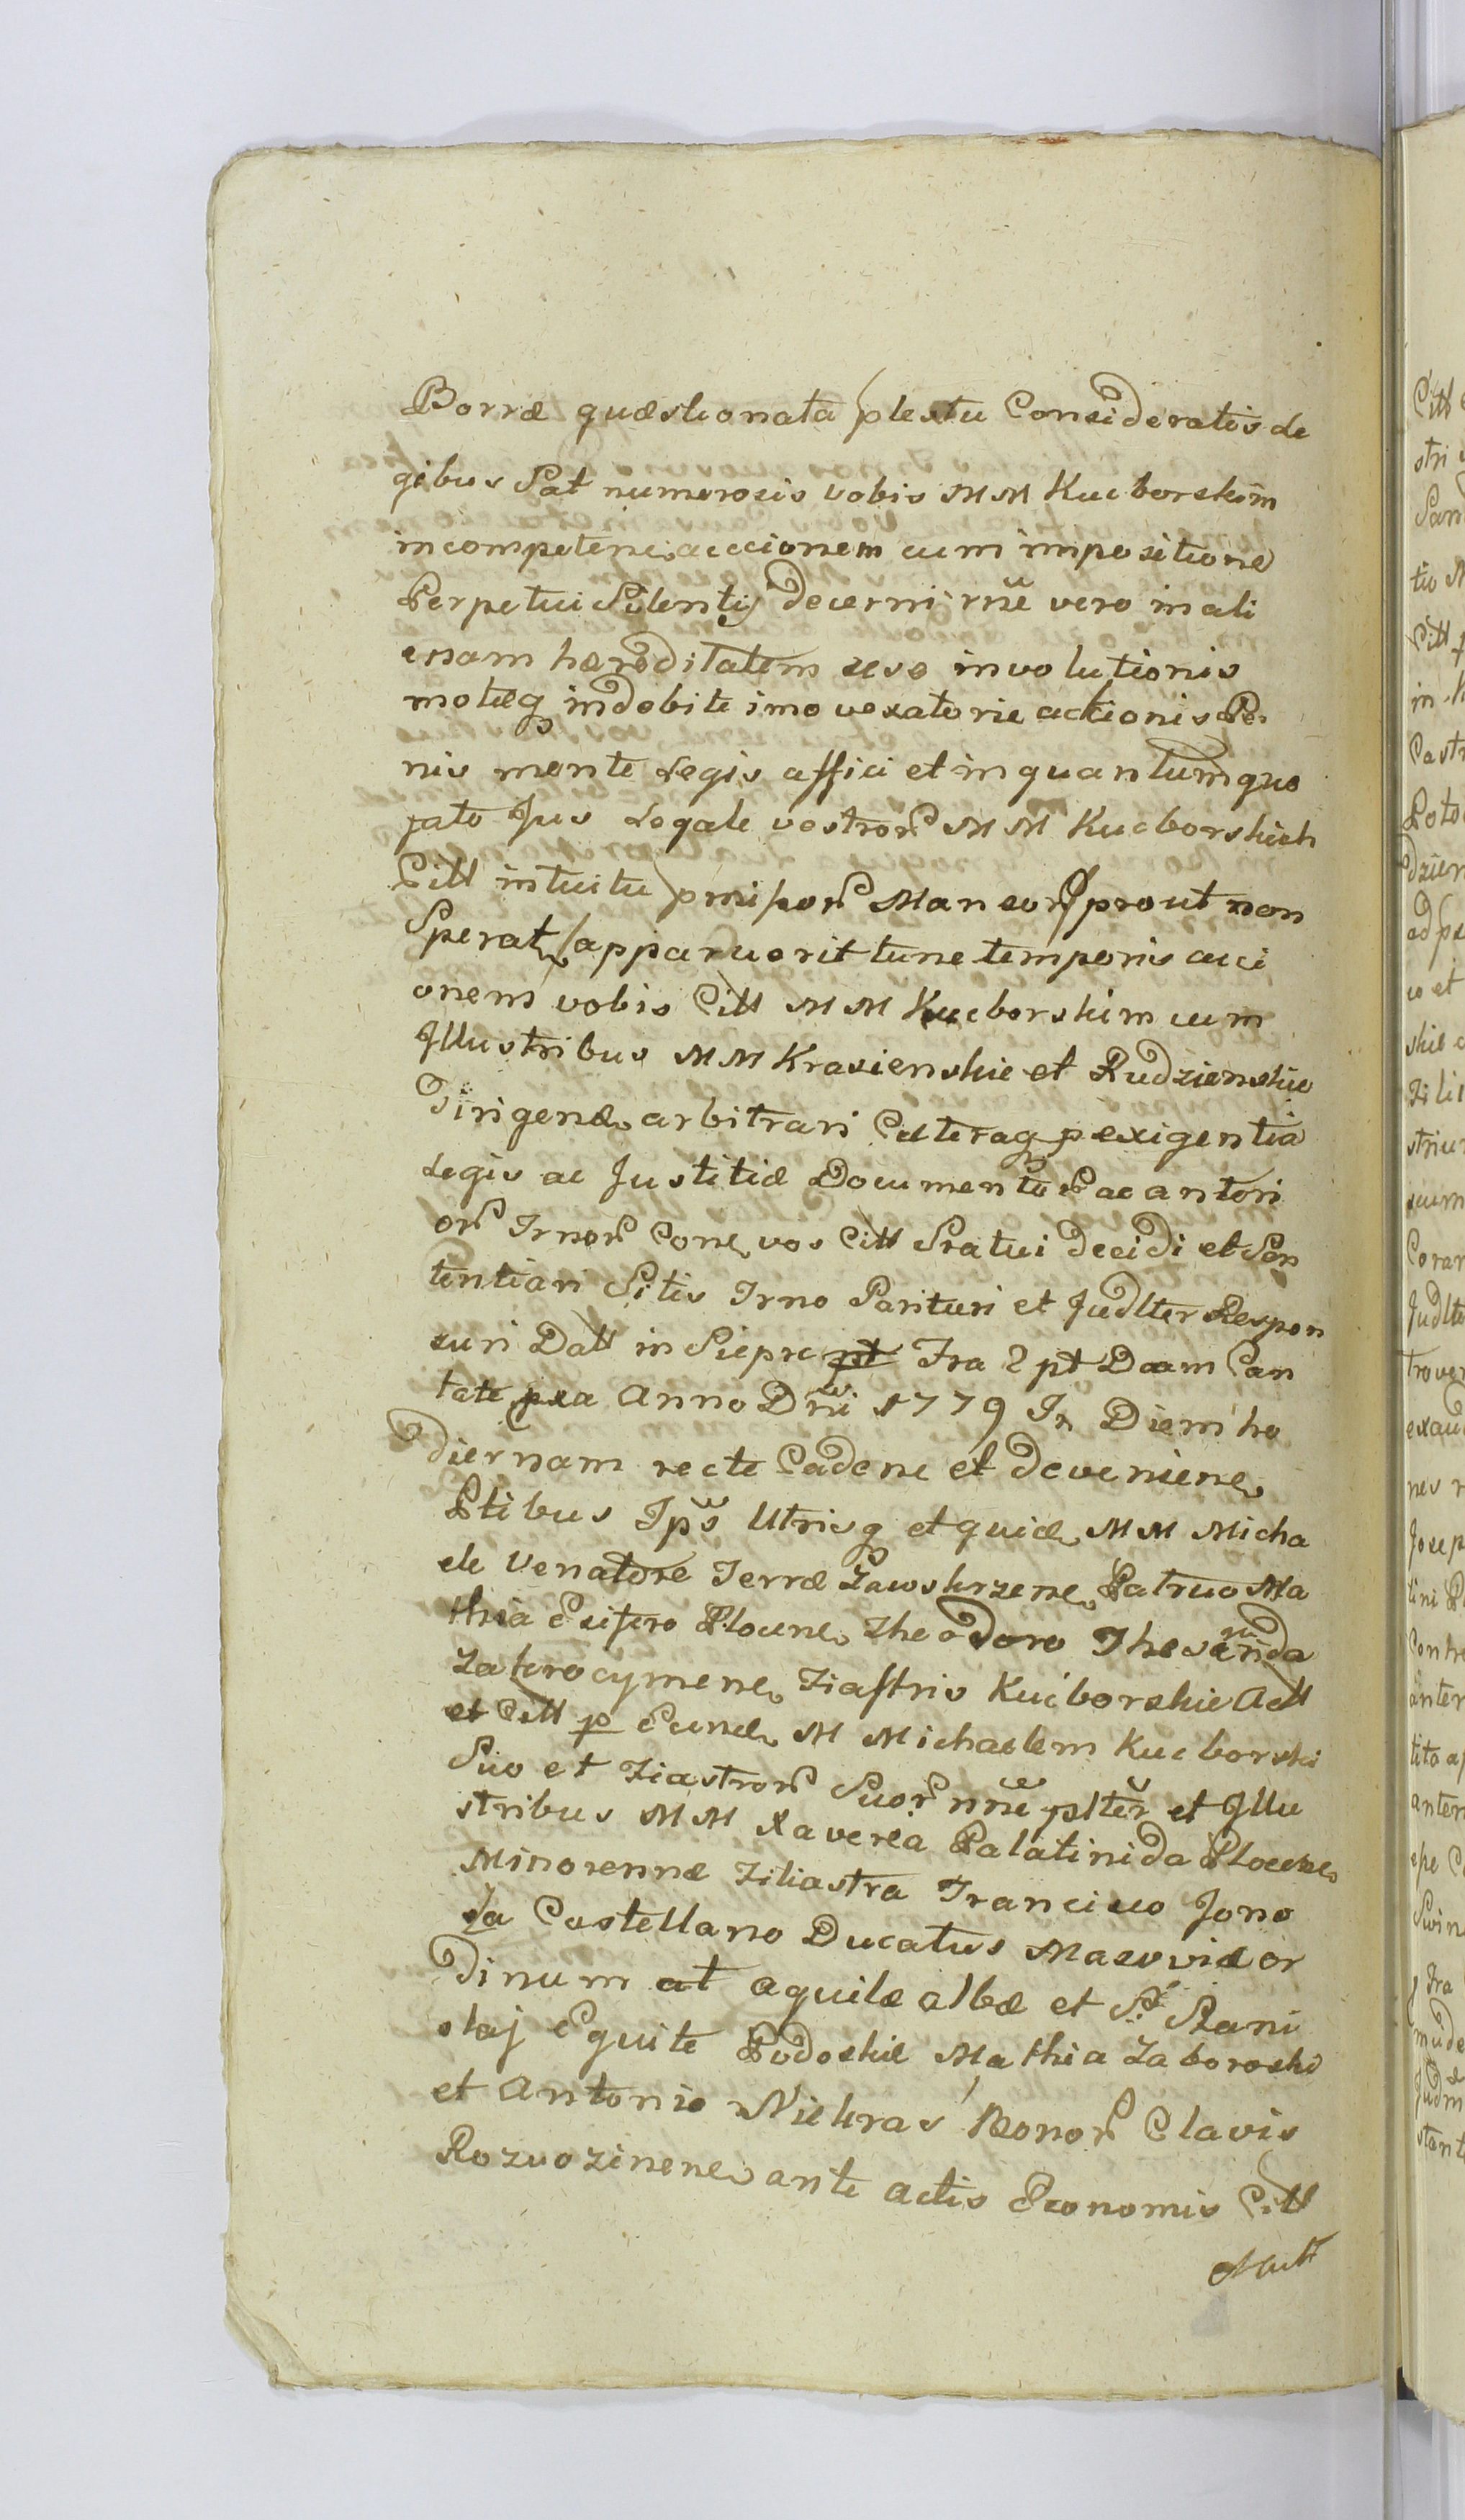 Borræ quæstionata plextu Consideratis Le
gibus Sat numerosis vobis MM Kucborskim
incompeten accionem cum impositione
Perpetui Silentij decerni rñe vero in ali
enam hæreditatem sese involutionis
motæq indebite imo vexatorie actionis Pe
nis mente Legis affici et in quantum quo
pato Jus Legale vestrorũ MM Kucborskich
Citt intuitu pmissorũ Mansorũ prout non
Sperat apparuerit tunc temporis acci
onem vobis Citt MM Kucborskim cum
Illustribus MM Krasienskie et Rudzienskie
Dirigen arbitrari Cæteraq p exigentia
Legis ac Justitiæ Documento ac anteri
orũ Trnorũ Cone vos Citt Statui decidi et Sen
tentiari Sitis Trno Parituri et Judlter Respon
suri Datt in Sieprc pt Fra 2 pt Dnam Can
tate pxa Anno Dñi 1779 In Diem ho
diernam recte Caden et devenien
Ptibus Ips Utrisq et quid MM Micha
ele Venatore Terræ Zawskrzen Patruo Ma
thia Ensifero Plocen Theodoro Thesaurida
Zakrocymen Fiastris Kucborskie Act
et Citt p Eund M Michaelem Kucborski
Suo et Fiastrorũ Suorũ nñe plter et Illu
stribus MM Xaveria Palatinida Plocen
Minorenna Filiastra Francisco Jono
sa Castellano Ducatus Masoviæ or
dinum at aquilæ albæ et S. Stani
slaj Equite Podoskie Mathia Zaboroski
et Antonio Niekras Bonorũ Clavis
Rozwozinen ante actis Economis Citt